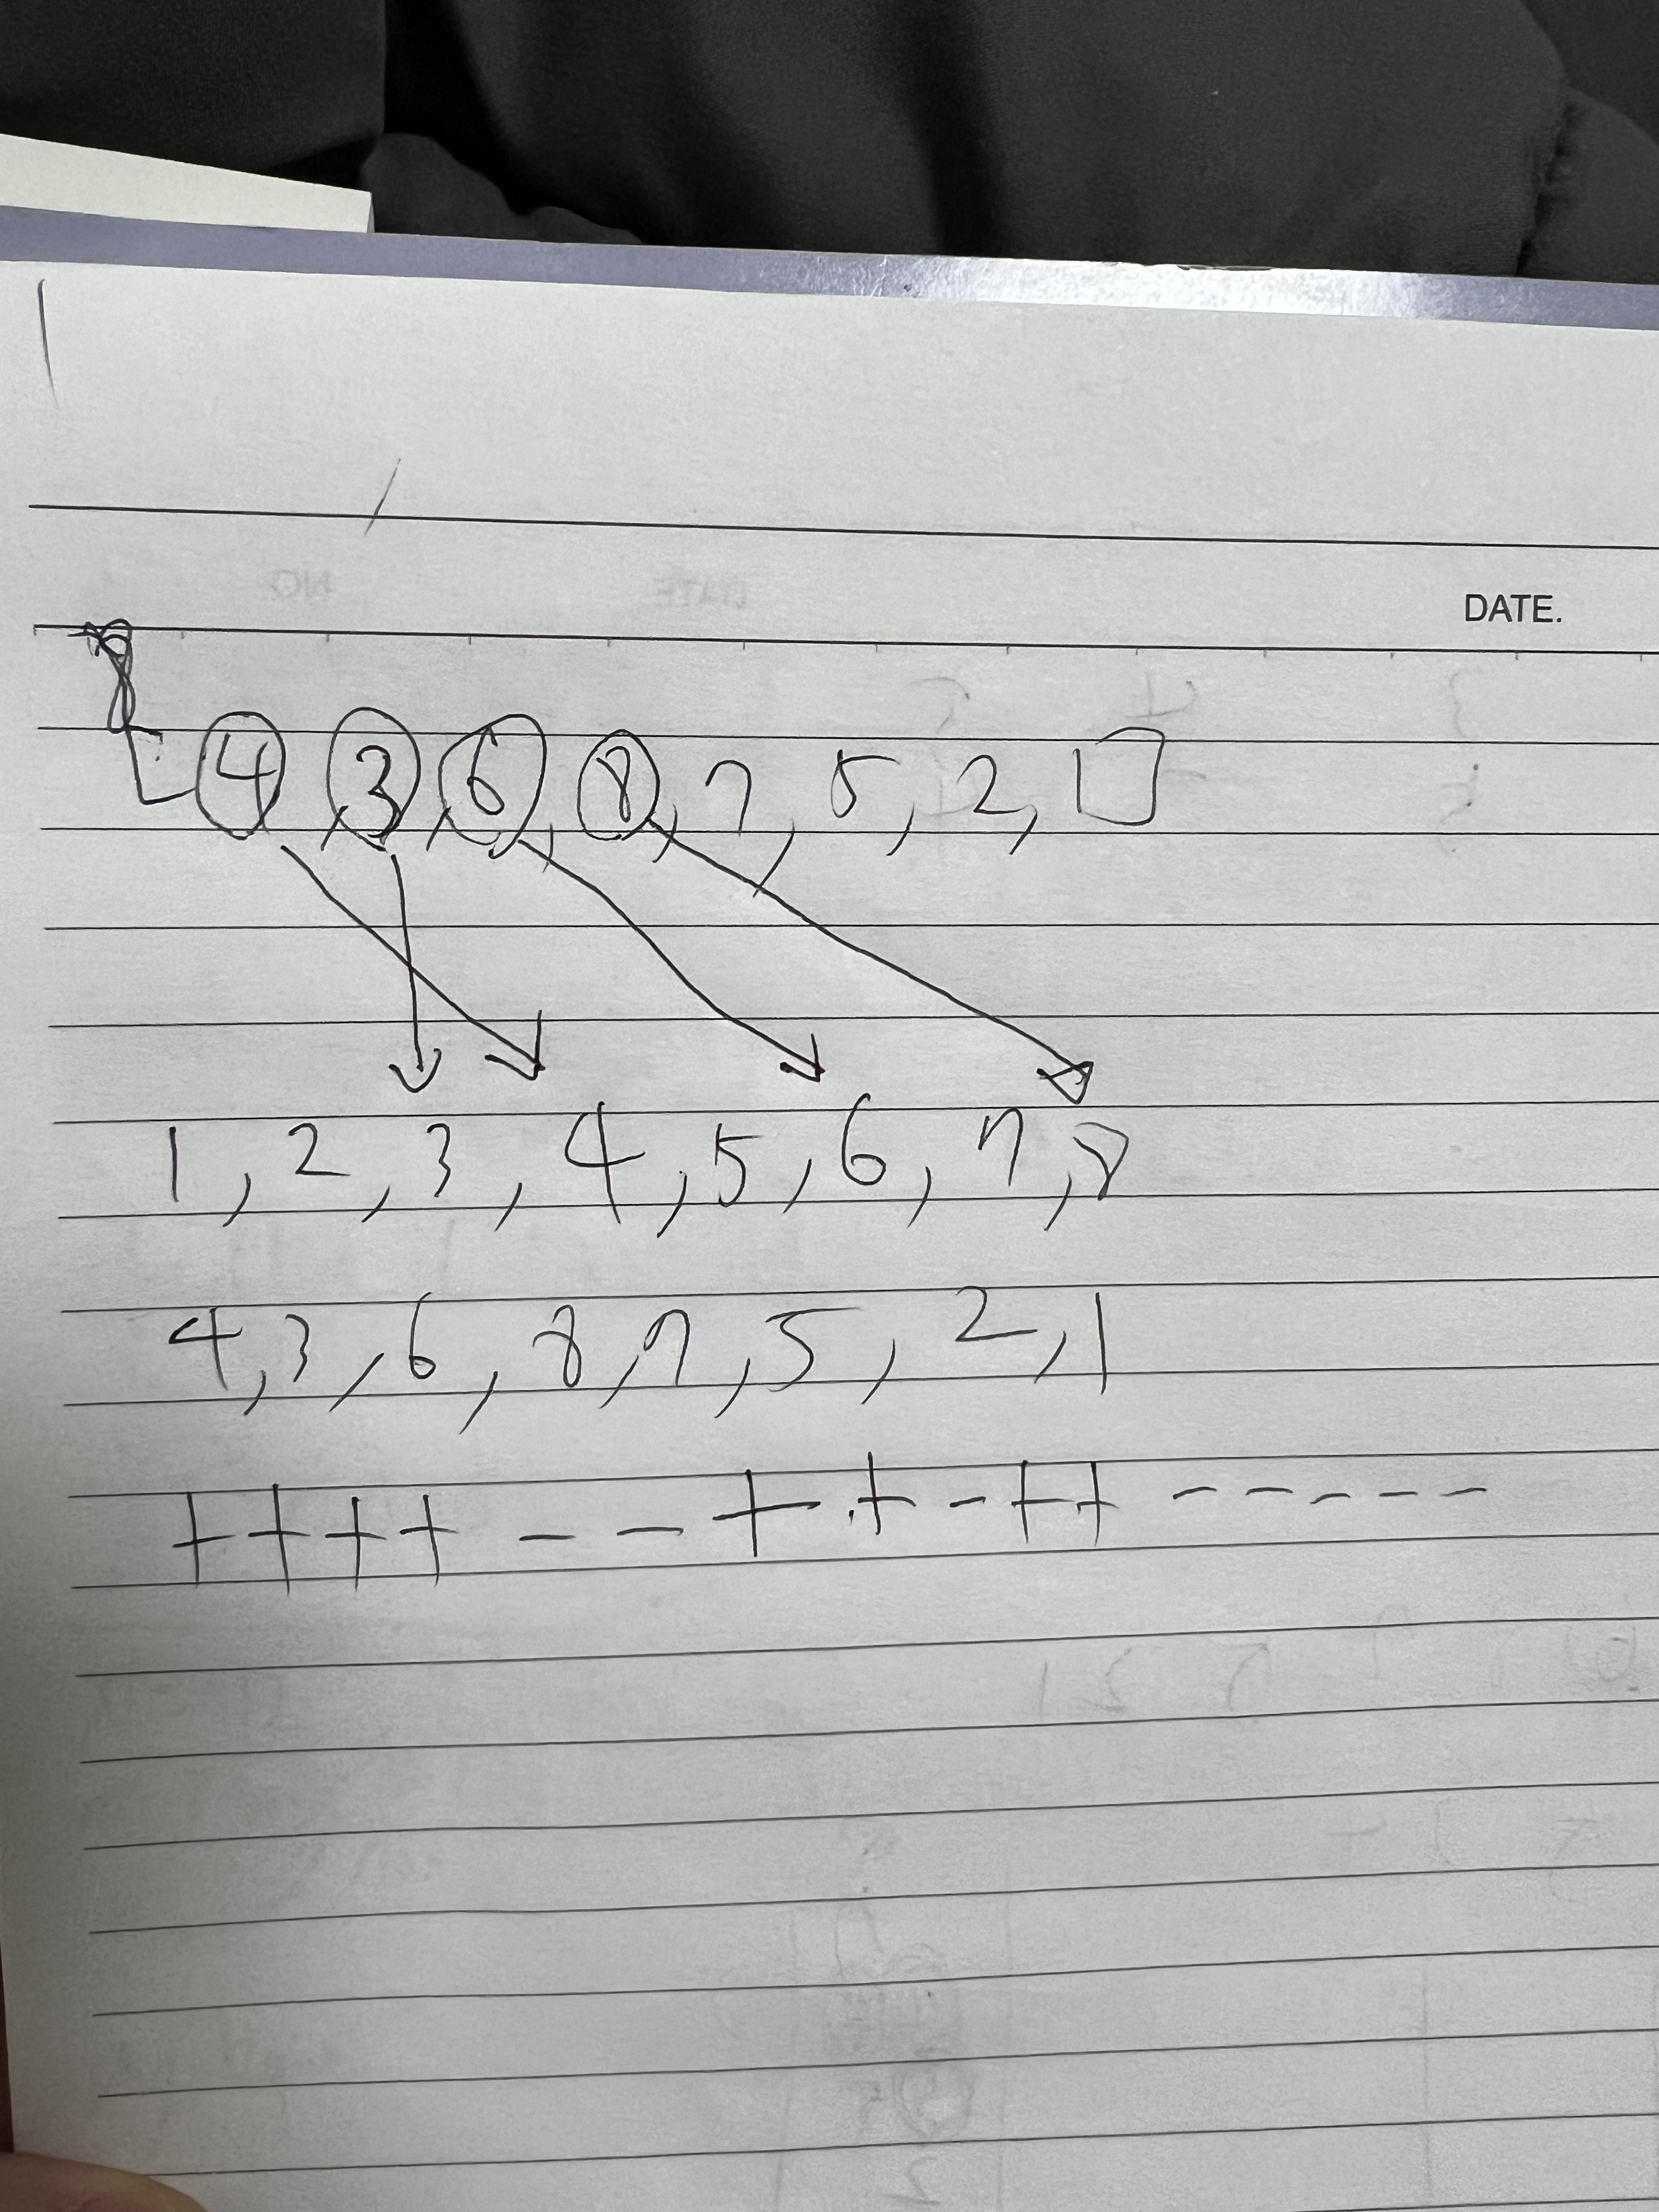 DATE.
4, 3, 6, 8, 7, 5, 2, □
1, 2, 3, 4, 5, 6, 7, 8
4, 3, 6, 8, 7, 5, 2, 1
++++--++-++-----